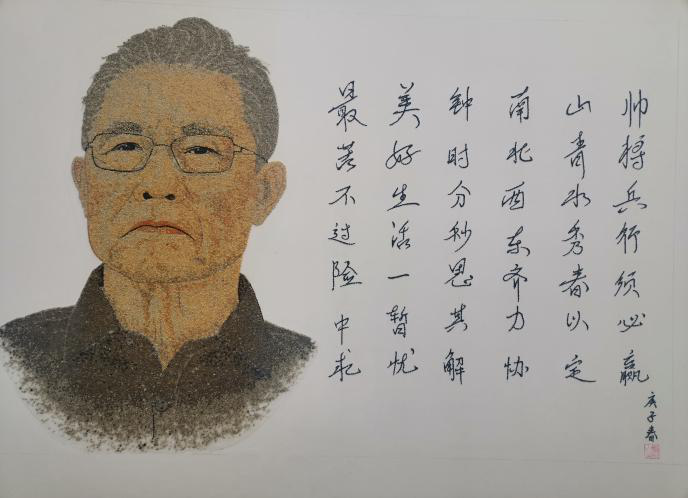 最苦不过险中求
美好生活一暂忧
钟时分秒思其解
南北西东齐力协
山青水秀春以定
帅将兵行须必赢
庚子春